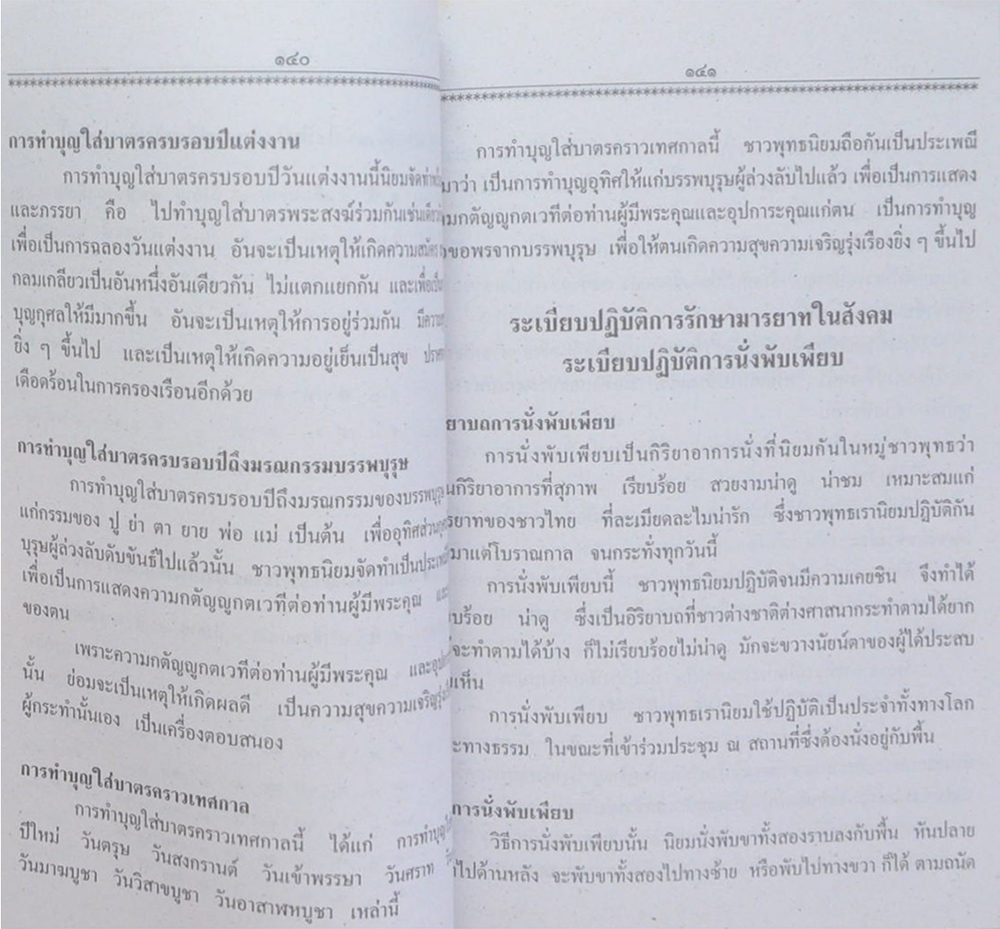 ๑๔๐
การทำบุญใส่บาตรครบรอบปีแต่งงาน
การทำบุญใส่บาตรครบรอบปีวันแต่งงานนี้นิยมจัดทำ
และภรรยา คือ ไปทำบุญใส่บาตรพระสงฆ์ร่วมกันเช่นเดียว
เพื่อเป็นการฉลองวันแต่งงาน อันจะเป็นเหตุให้เกิดความสมัคร
กลมเกลียวเป็นอันหนึ่งอันเดียวกัน ไม่แตกแยกกัน และเพื่อเป็น
บุญกุศลให้มีมากขึ้น อันจะเป็นเหตุให้การอยู่ร่วมกัน มีความ
ยิ่ง ๆ ขึ้นไป และเป็นเหตุให้เกิดความอยู่เย็นเป็นสุข
เดือดร้อนในการครองเรือนอีกด้วย
การทำบุญใส่บาตรครบรอบปีถึงมรณกรรมบรรพบุรุษ
การทำบุญใส่บาตรครบรอบปีถึงมรณกรรมของบรรพบุรุษ
แก่กรรมของ ปู่ ย่า ตา ยาย พ่อ แม่ เป็นต้น เพื่ออุทิศส่วน
บุรุษผู้ล่วงลับดับขันธ์ไปแล้วนั้น ชาวพุทธนิยมจัดทำเป็นประเพณี
เพื่อเป็นการแสดงความกตัญญูกตเวทีต่อท่านผู้มีพระคุณ และ
ของตน
เพราะความกตัญญูกตเวทีต่อท่านผู้มีพระคุณ
นั้น ย่อมจะเป็นเหตุให้เกิดผลดี เป็นความสุขความเจริญรุ่ง
ผู้กระทำนั้นเอง เป็นเครื่องตอบสนอง
การทำบุญใส่บาตรคราวเทศกาล
การทำบุญใส่บาตรคราวเทศกาลนี้ ได้แก่ การทำบุญ
ปีใหม่ วันตรุษ วันสงกรานต์ วันเข้าพรรษา วันศราท
วันมาฆบูชา วันวิสาขบูชา วันอาสาฬหบูชา เหล่านี้
๑๔๑
การทำบุญใส่บาตรคราวเทศกาลนี้ ชาวพุทธนิยมถือกันเป็นประเพณี
มาว่า เป็นการทำบุญอุทิศให้แก่บรรพบุรุษผู้ล่วงลับไปแล้ว เพื่อเป็นการแสดง
มกตัญญูกตเวทีต่อท่านผู้มีพระคุณและอุปการะคุณแก่ตน เป็นการทำบุญ
ขอพรจากบรรพบุรุษ เพื่อให้ตนเกิดความสุขความเจริญรุ่งเรืองยิ่ง ๆ ขึ้นไป
ระเบียบปฏิบัติการรักษามารยาทในสังคม
ระเบียบปฏิบัติการนั่งพับเพียบ
ยาบถการนั่งพับเพียบ
การนั่งพับเพียบเป็นกิริยาอาการนั่งที่นิยมกันในหมู่ชาวพุทธว่า
นกิริยาอาการที่สุภาพ เรียบร้อย สวยงามน่าดู น่าชม เหมาะสมแก่
รยาทของชาวไทย ที่ละเมียดละไมน่ารัก ซึ่งชาวพุทธเรานิยมปฏิบัติกัน
มาแต่โบราณกาล จนกระทั่งทุกวันนี้
การนั่งพับเพียบนี้ ชาวพุทธนิยมปฏิบัติจนมีความเคยชิน จึงทำได้
บร้อย น่าดู ซึ่งเป็นอิริยาบถที่ชาวต่างชาติต่างศาสนากระทำตามได้ยาก
จะทำตามได้บ้าง ก็ไม่เรียบร้อยไม่น่าดู มักจะขวางนัยน์ตาของผู้ได้ประสบ
เห็น
การนั่งพับเพียบ ชาวพุทธเรานิยมใช้ปฏิบัติเป็นประจำทั้งทางโลก
ะทางธรรม ในขณะที่เข้าร่วมประชุม ณ สถานที่ซึ่งต้องนั่งอยู่กับพื้น
การนั่งพับเพียบ
วิธีการนั่งพับเพียบนั้น นิยมนั่งพับขาทั้งสองราบลงกับพื้น หันปลาย
าไปด้านหลัง จะพับขาทั้งสองไปทางซ้าย หรือพับไปทางขวา ก็ได้ ตามถนัด